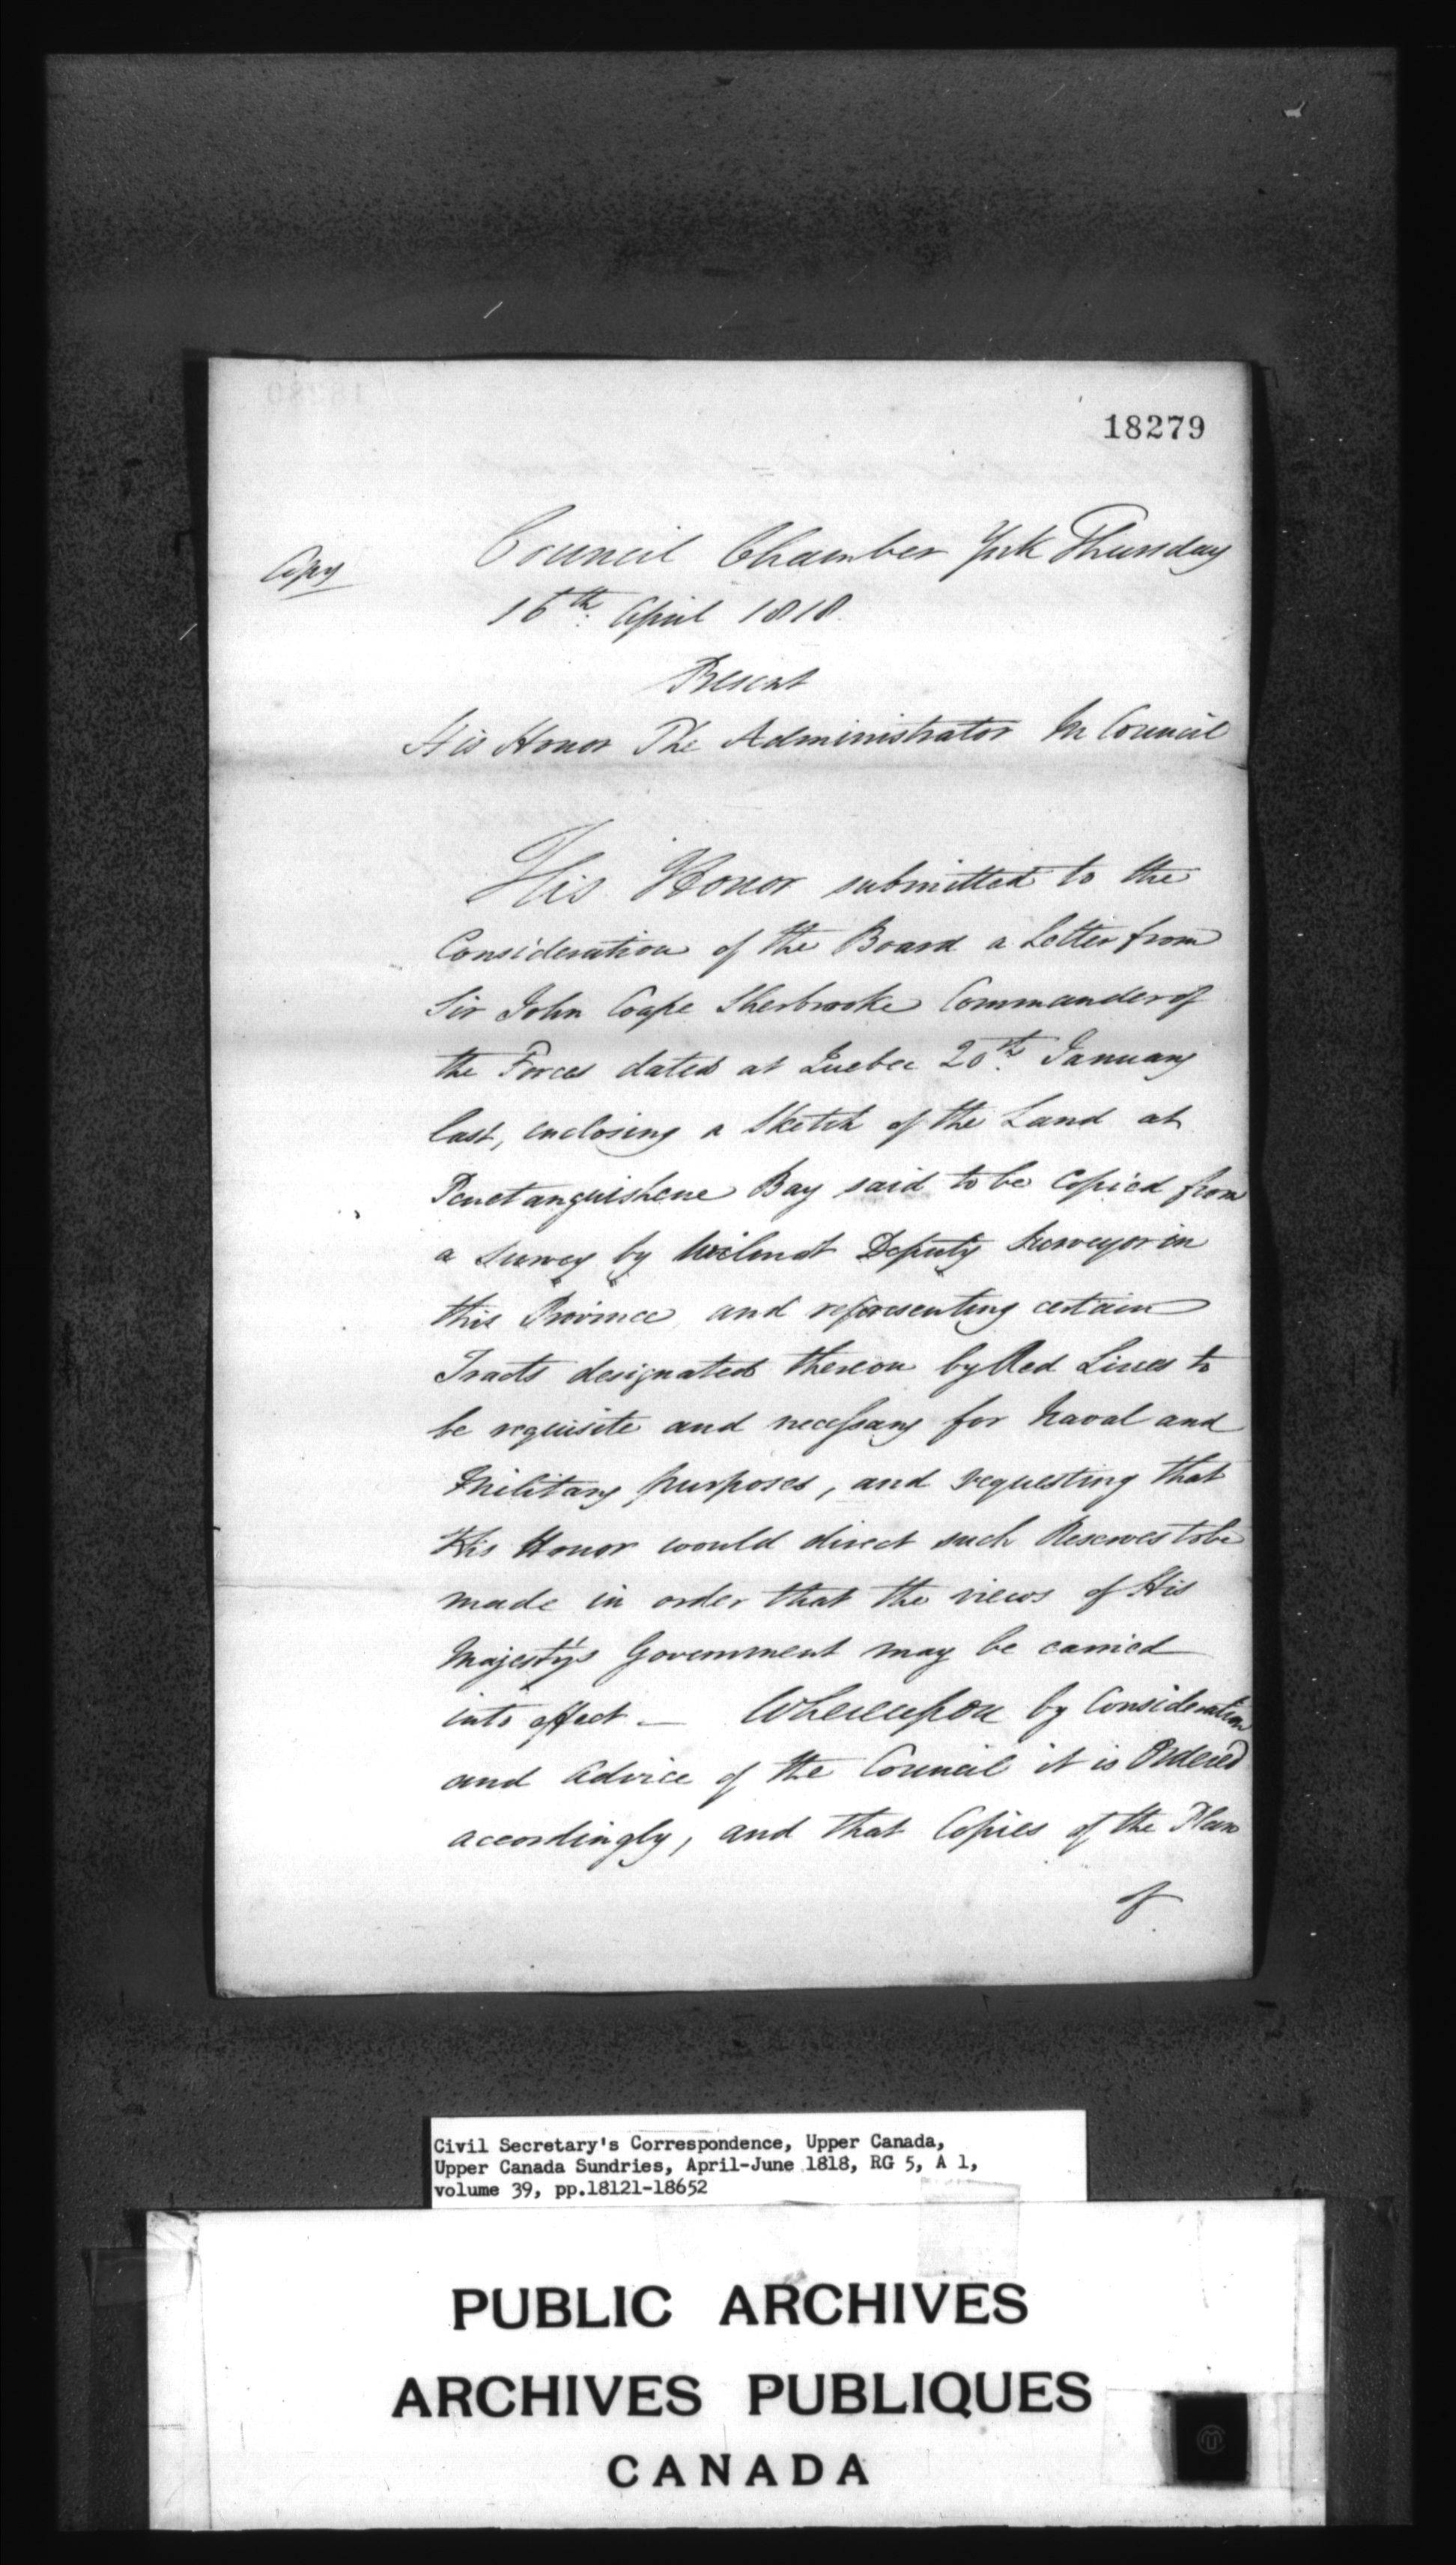 18279
Copy
Council Chamber York Thursday
16th April 1818.
Present
His Honor The Administrator In Council
His Honor submitted to the
Consideration of the Board a Letter from
Sir John Coape Sherbrooke Commander of
the Forces dated at Quebec 20th January
last, enclosing a Sketch of the Land at
Penetanguishene Bay said to be Copied from
a Survey by Wilmot Deputy Surveyor in
this Province and representing certain
Tracts designated thereon by Red Lines to
be requisite and necessary for Naval and
Military purposes, and requesting that
His Honor would direct such Reserves to be
made in order that the views of His
Majesty's Government may be carried
into effect — Whereupon by Consideration
and Advice of the Council it is Ordered
accordingly, and that Copies of the Plan
of
Civil Secretary's Correspondence, Upper Canada,
Upper Canada Sundries, April-June 1818, RG 5, A 1,
volume 39, pp.18121-18652
PUBLIC ARCHIVES
ARCHIVES PUBLIQUES
CANADA